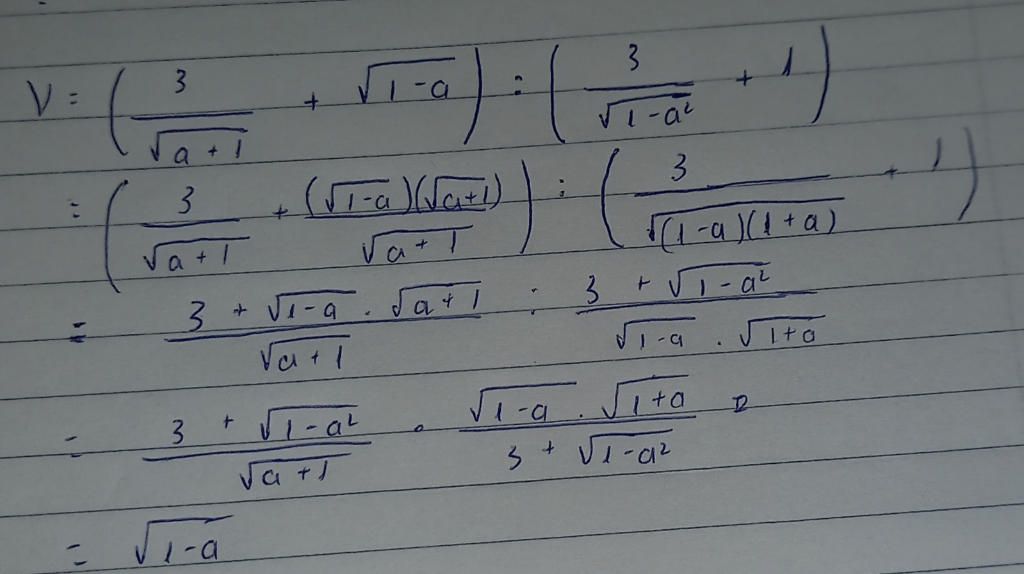 V = ( 3/√(a+1) + √(1-a) ) : ( 3/√(1-a²) + 1 )
= ( 3/√(a+1) + (√(1-a))(√(a+1))/√(a+1) ) : ( 3/√((1-a)(1+a)) + 1 )
= (3 + √(1-a) · √(a+1))/√(a+1) : (3 + √(1-a²))/(√(1-a) · √(1+a))
= (3 + √(1-a²))/√(a+1) · (√(1-a) · √(1+a))/(3 + √(1-a²)) =
= √(1-a)